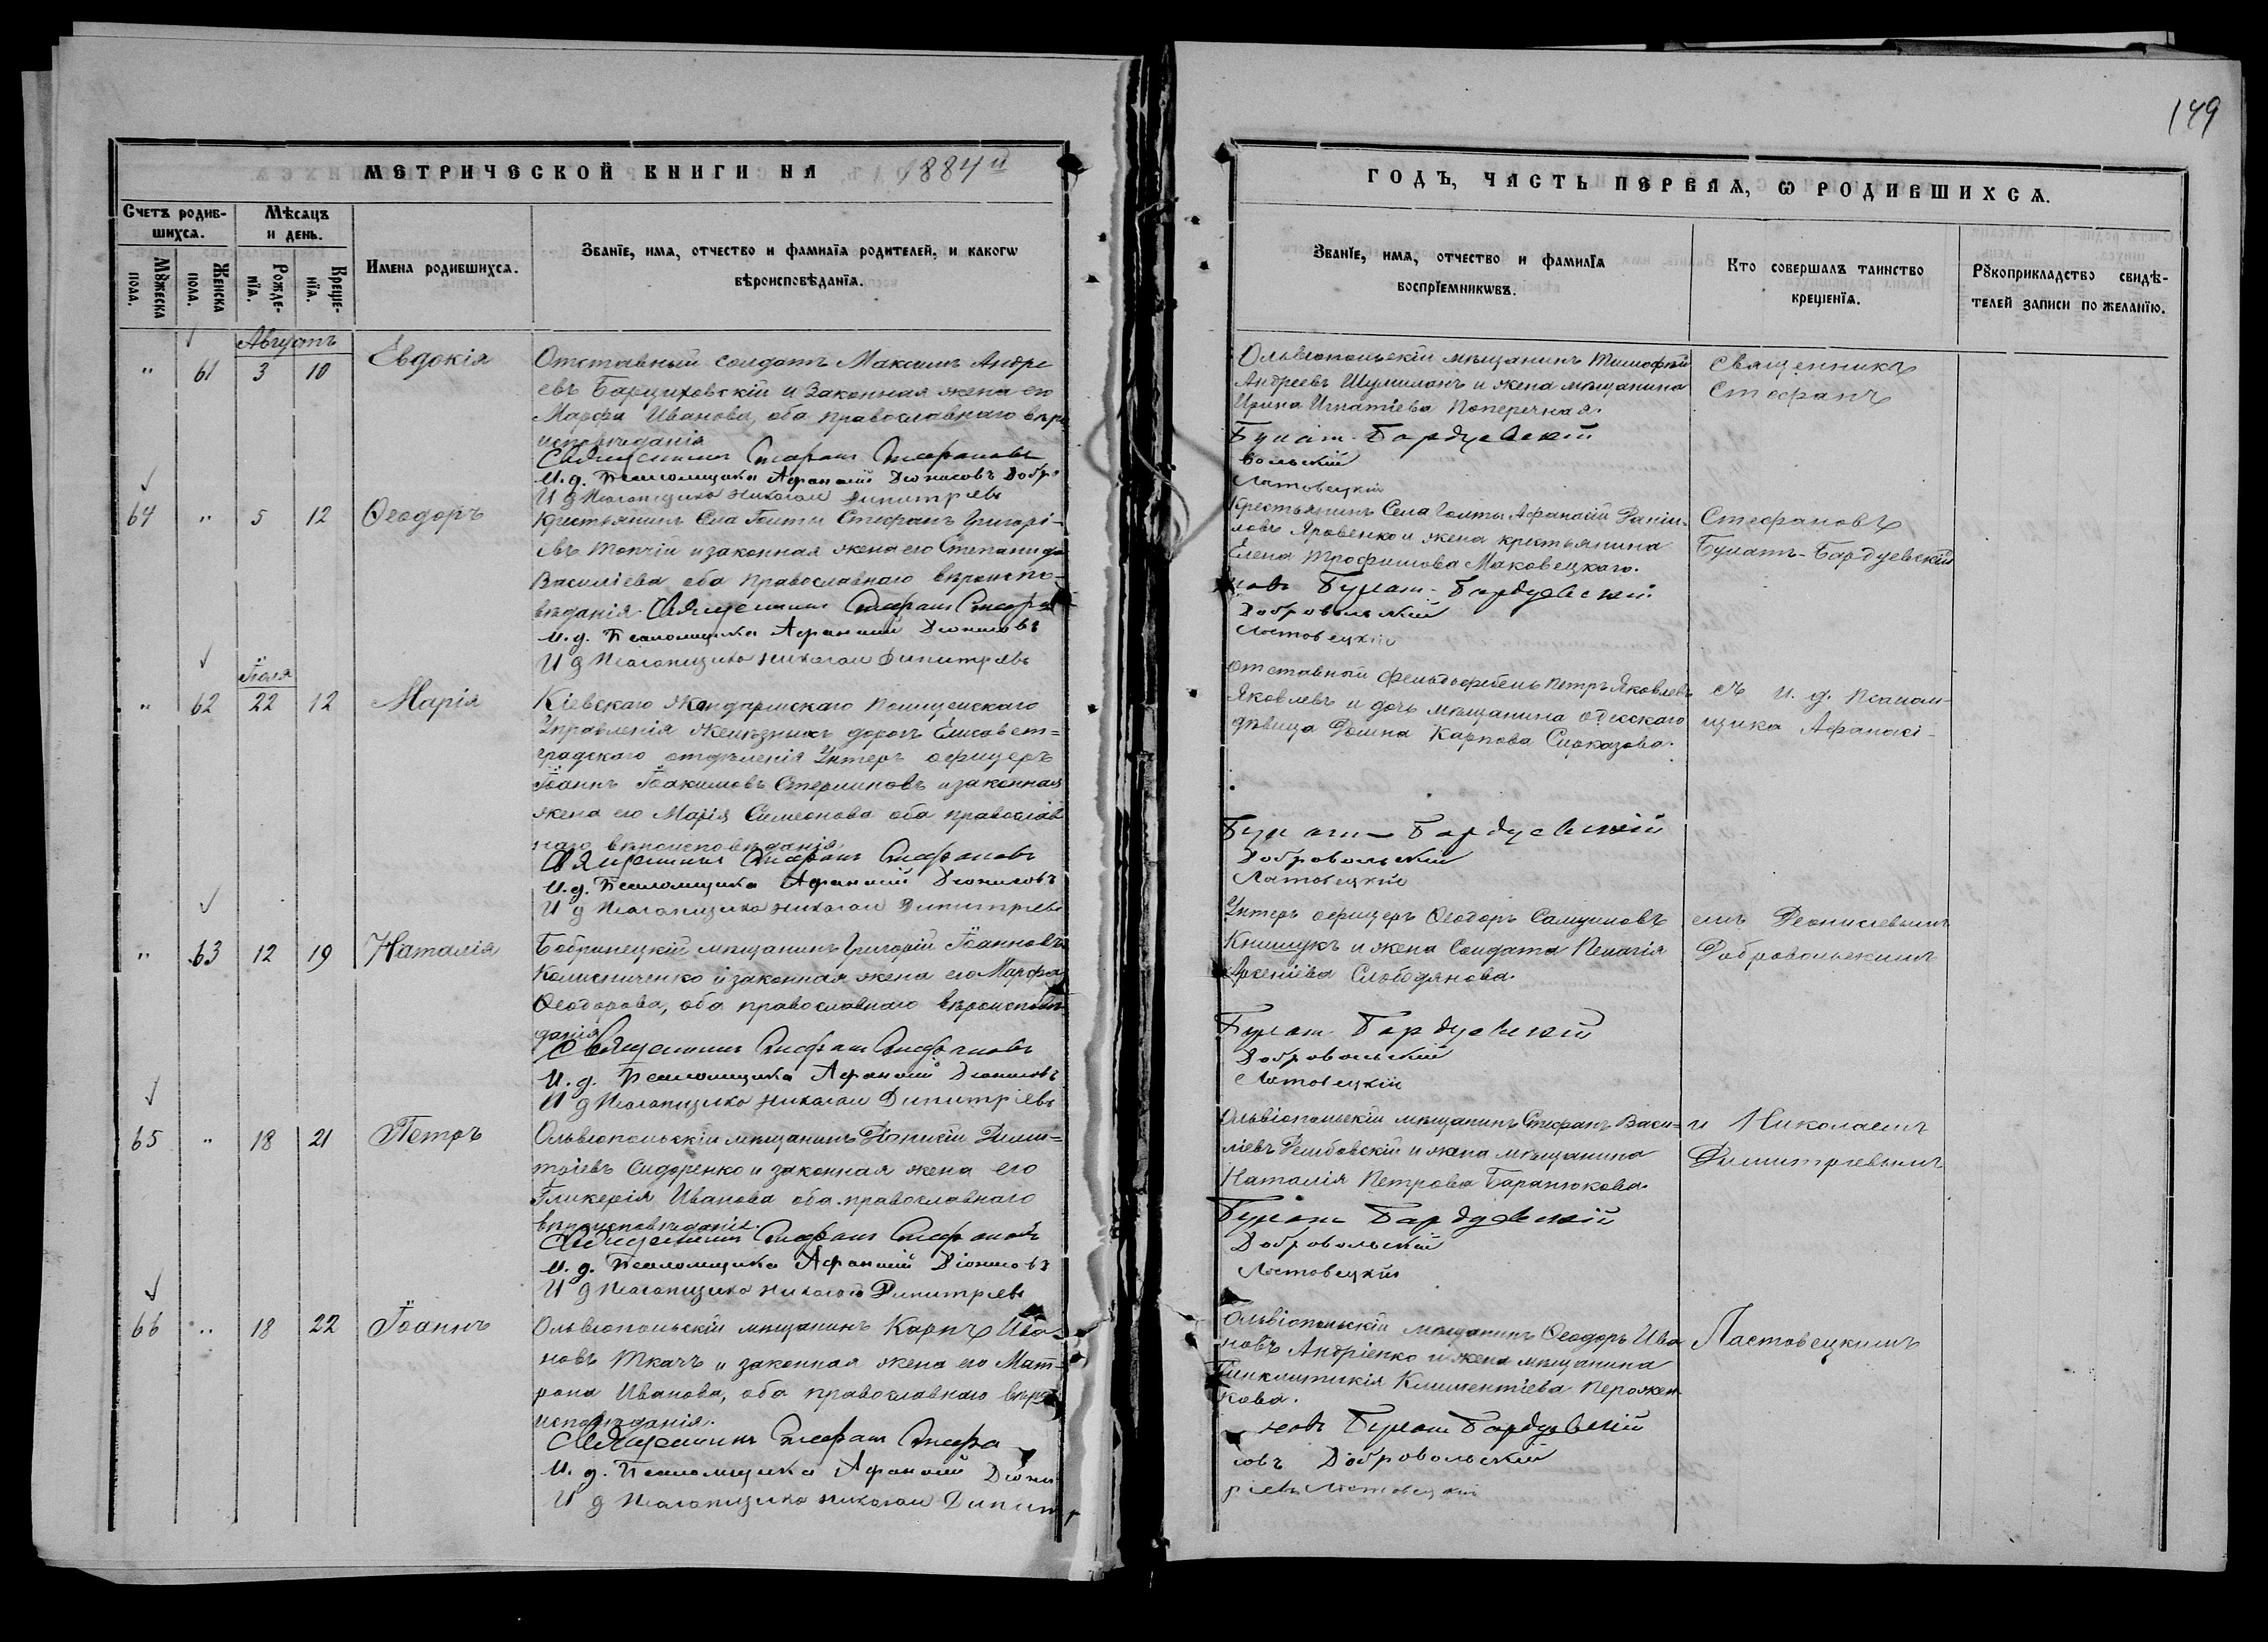 149
МЕТРИЧЕСКОЙ КНИГИ НА 1884й
ГОДЪ, ЧАСТЬ ПЕРВАЯ, Ѡ РОДИВШИХСЯ.
Счетъ родив-
шихся.
Мѣсяцъ
и день.
Мꙋжеска
пола.
Женска
пола.
Рожде-
нїя.
Креще-
нїя.
Имена родившихся.
Званїе, имя, отчество и фамилїя родителей, и какогѡ
вѣроисповѣданїя.
Званїе, имя, отчество и фамилїя
воспрїемникѡвъ.
Кто совершалъ таинство
крещенїя.
Рꙋкоприкладство свидѣ-
телей записи по желанїю.
Августъ
" 61 3 10 Евдокія
Отставный солдатъ Максимъ Андре
евъ Барциховскій и законная жена его
Марфа Иванова, оба православнаго вѣро
исповѣданія
Священникъ Стефанъ Стефановъ
И. д. Псаломщика Афанасій Діонисовъ Добро
И д Псаломщика Николай Димитріевъ
Ольвіопольскій мѣщанинъ Тимофей
Андреевъ Шулиманъ и жена мѣщанина
Ирина Игнатіева Поперечная.
Булат-Бардуевскій
вольскій
Ластовецкій
Священникъ
Стефанъ
64 " 5 12 Ѳеодоръ
Крестьянинъ Села Голты Стефанъ Григорі-
евъ Топчій и законная жена его Степанида
Василіева оба православнаго вѣроиспо-
вѣданія. Священникъ Стефанъ Стефа
И. д. Псаломщика Афанасій Діонисовъ
И д Псаломщика Николай Димитріевъ
Крестьянинъ Села Голты Афанасій Даніи-
ловъ Яровенко и жена крестьянина
Елена Трофимова Маковецкаго.
новъ Булат-Бардуевскій
Добровольскій
Ластовецкій
Стефановъ
Булатъ-Бардуевскій
Іюля
" 62 22 12 Марія
Кіевскаго Жандармскаго Полицейскаго
Управленія желѣзныхъ дорогъ Елисавет=
градскаго отдѣленія Унтеръ офицеръ
Іоаннъ Іоакимовъ Стерлиновъ и законная
жена его Марія Симеонова оба православ
наго вѣроисповѣданія
Священникъ Стефанъ Стефановъ
И. д. Псаломщика Афанасій Діонисовъ
И д Псаломщика Николай Димитріевъ
отставный фельдфебель Петръ Яковлевъ
Яковлевъ и дочь мѣщанина Одесскаго
дѣвица Домна Карпова Сирказова.
Булат-Бардуевскій
Добровольскій
Ластовецкій
съ и. д. Псалом-
щика Афанасі-
" 63 12 19 Наталія
Бобринецкій мѣщанинъ Григорій Іоанновъ
Колисниченко и законная жена его Марфа
Ѳеодорова, оба православнаго вѣроисповѣ-
данія
Священникъ Стефанъ Стефановъ
И. д. Псаломщика Афанасій Діонисовъ
И д Псаломщика Николай Димитріевъ
Унтеръ офицеръ Ѳеодоръ Самуиловъ
Книшукъ и жена Солдата Пелагія
Арсеніева Слободянова.
Булат Бардуевскій
Добровольскій
Ластовецкій
емъ Діонисіевымъ
Добровольскимъ
65 " 18 21 Петръ
Ольвіопольскій мѣщанинъ Діонисій Дими=
тріевъ Сидоренко и законная жена его
Гликерія Иванова оба православнаго
вѣроисповѣданія.
Священникъ Стефанъ Стефановъ
И. д. Псаломщика Афанасій Діонисовъ
И д Псаломщика Николай Димитріевъ
Ольвіопольскій мѣщанинъ Стефанъ Васи-
ліевъ Дембовскій и жена мѣщанина
Наталія Петрова Баранюкова.
Булат Бардуевскій
Добровольскій
Ластовецкій
и Николаемъ
Димитріевымъ
66 " 18 22 Іоаннъ
Ольвіопольскій мѣщанинъ Карпъ Ива-
новъ Ткачъ и законная жена его Мат-
рона Иванова, оба православнаго вѣро
исповѣданія.
Священникъ Стефанъ Стефа
И. д. Псаломщика Афанасій Діони
И д Псаломщика Николай Димит
Ольвіопольскій мѣщанинъ Ѳеодоръ Ива
новъ Андріенко и жена мѣщанина
Синклитикія Климентіева Перожен
кова.
новъ Булат Бардуевскій
совъ Добровольскій
ріевъ Ластовецкій
Ластовецкимъ